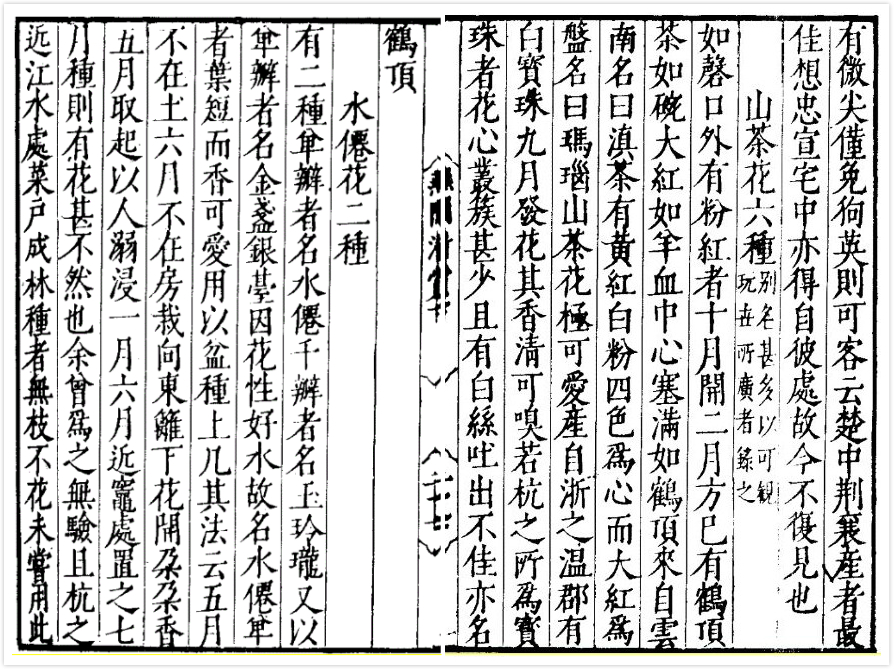 有微尖僅免狗英則可客云楚中荆襄産者最
佳想忠宣宅中亦得自彼處故今不復見也
山茶花六種别名甚多以可觀
玩在所廣者錄之
如磬口外有粉紅者十月開二月方已有鶴頂
茶如碗大紅如羊血中心塞滿如鶴頂來自雲
南名曰滇茶有黃紅白粉四色爲心而大紅爲
盤名曰瑪瑙山茶花極可愛産自浙之温郡有
白寶珠九月發花其香清可嗅若杭之所爲寶
珠者花心叢簇甚少且有白絲吐出不佳亦名
二十七
鶴頂
水僊花二種
有二種单瓣者名水僊千瓣者名玉玲瓏又以
单瓣者名金盞銀臺因花性好水故名水僊单
者葉短而香可愛用以盆種上几其法云五月
不在土六月不在房栽向東籬下花開朶朶香
五月取起以人溺浸一月六月近竈處置之七
月種則有花甚不然也余曾爲之無驗且杭之
近江水處菜戸成林種者無枝不花未嘗用此